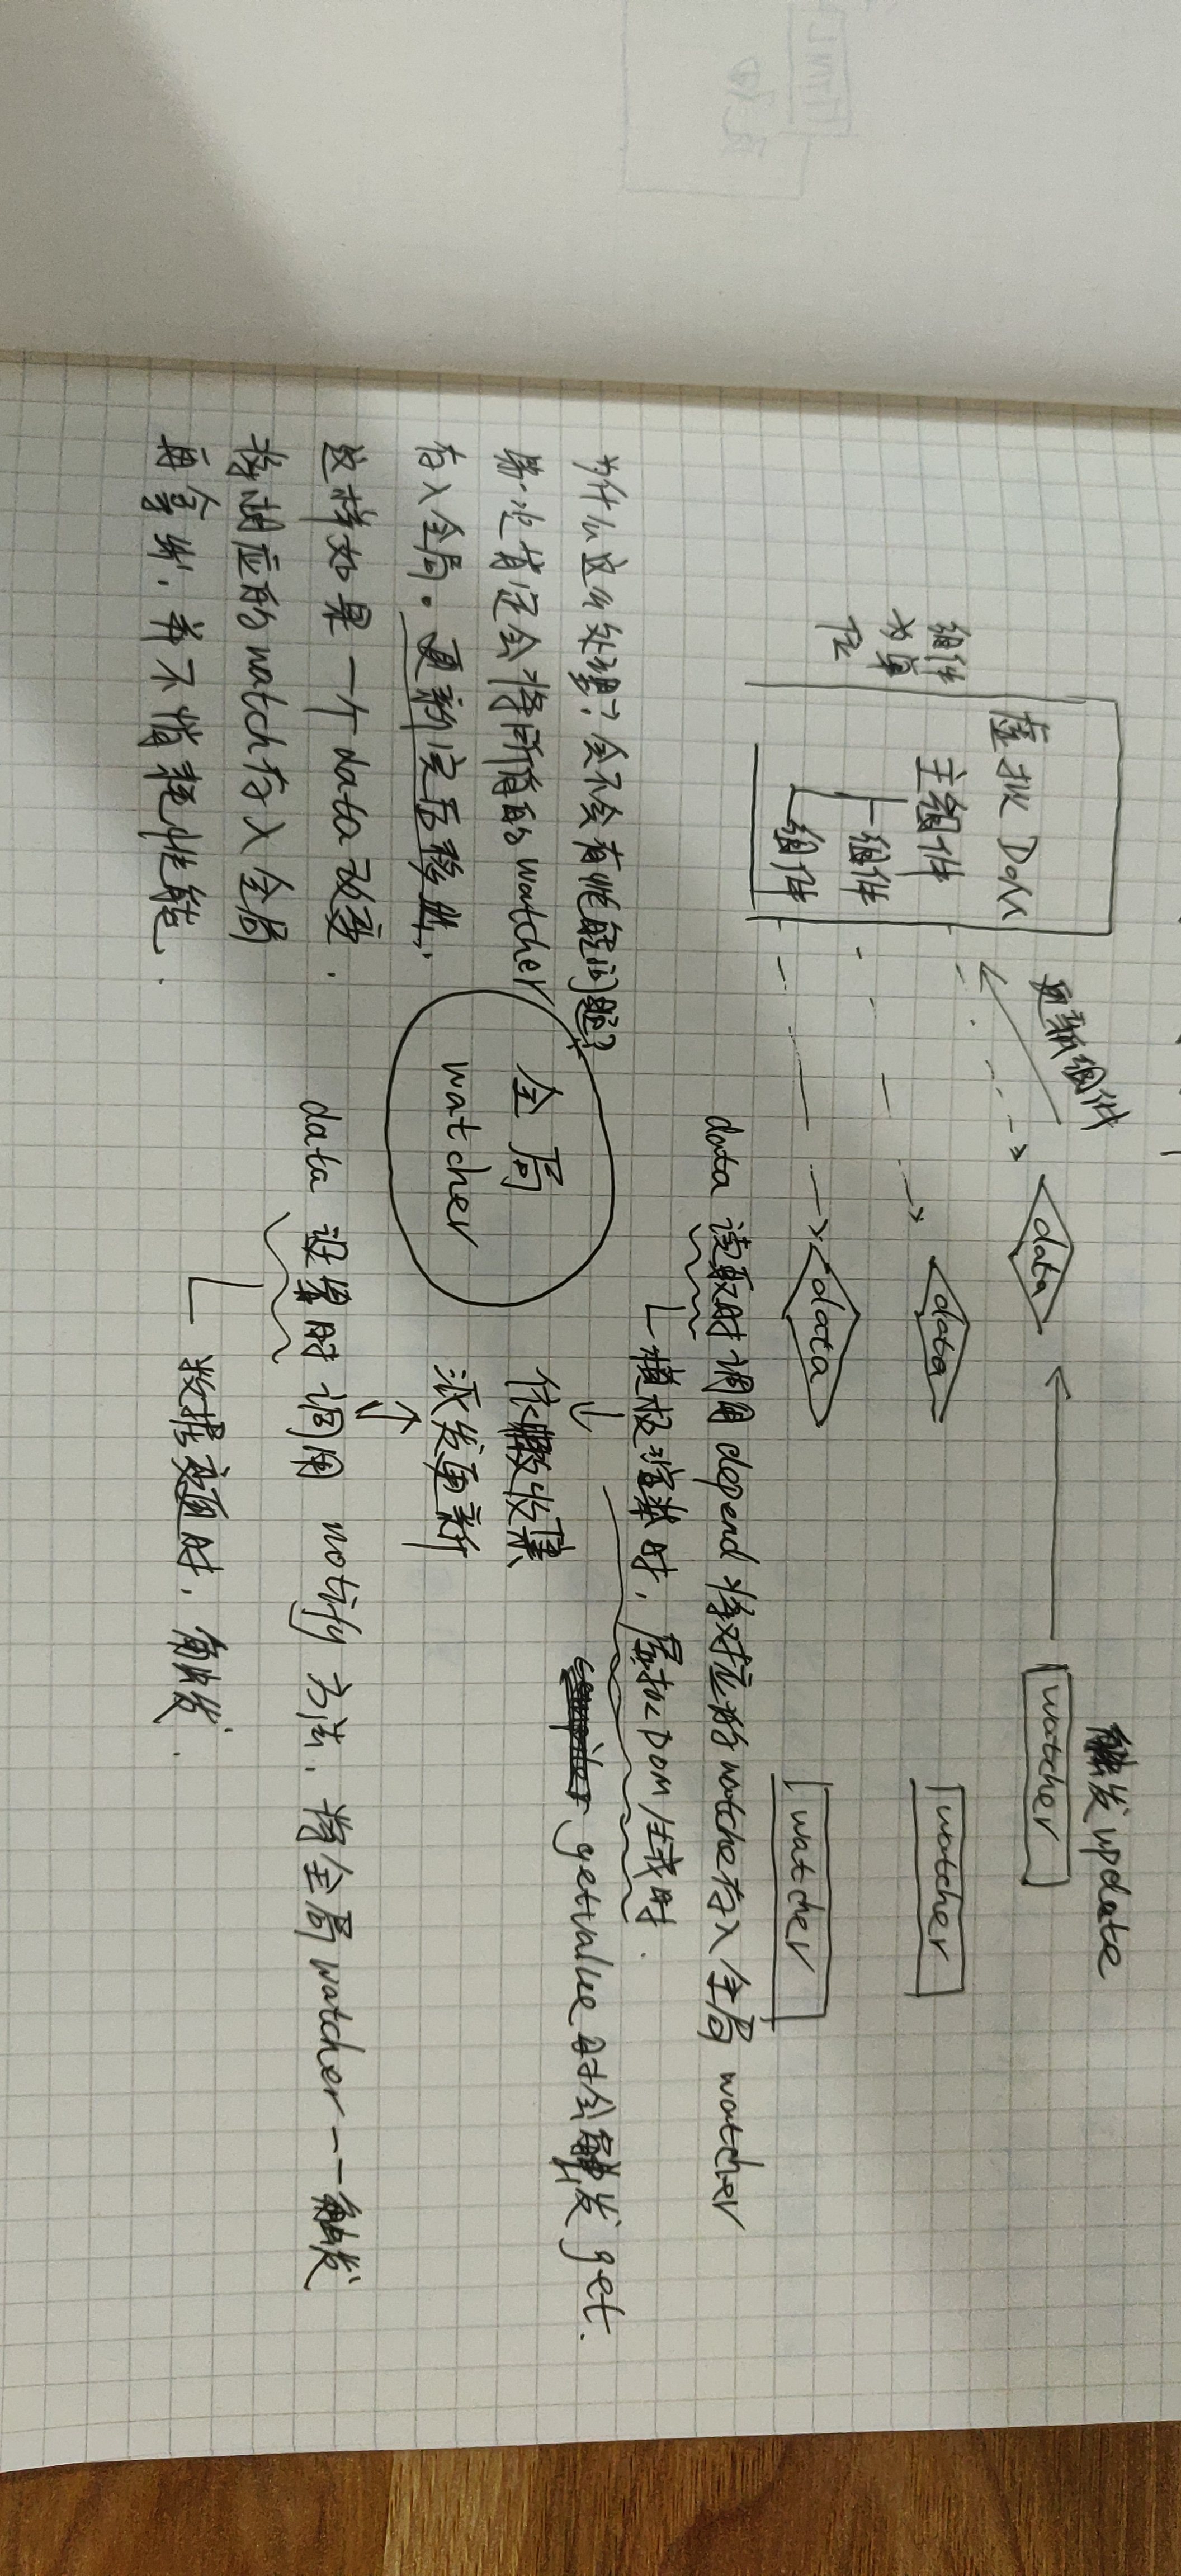 触发update
更新组件
虚拟DOM
主组件
组件
组件
组件
为单
位
data
data
data
watcher
watcher
watcher
data 读取时调用 depend 将对应的watche存入全局 watcher
模板渲染时，虚拟DOM生成时.
getvalue时会触发 get.
依赖收集
派发更新
全局
watcher
data 设置时调用 notify 方法. 将全局watcher一一触发
数据变更时，触发.
为什么这么处理？会不会有性能问题？
第一次肯定会将所有的watcher
存入全局. 更新完后移出.
这样如果一个data改变.
将相应的watch存入全局
再拿出，并不消耗性能.